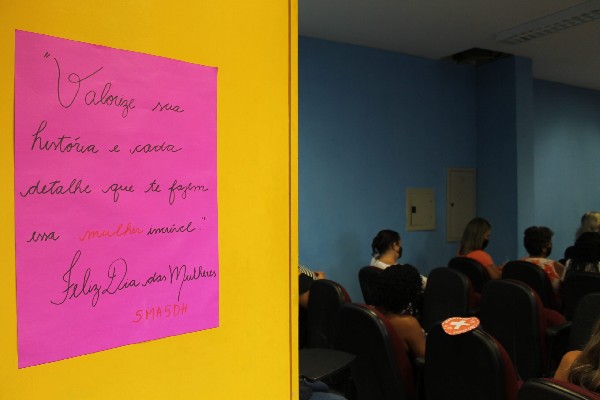 "Valorize sua
história e cada
detalhe que te fazem
essa mulher incrível."
Feliz Dia das Mulheres
SMASDH